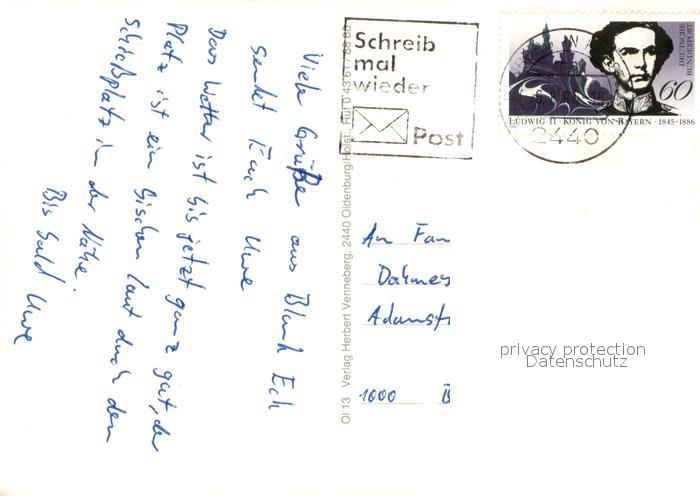 Viele Grüße aus Blank Eck
sendet Euch Uwe
Das Wetter ist bis jetzt ganz gut, der
Platz ist ein bischen laut durch den
Schießplatz in der Nähe.
Bis bald Uwe
Ol 13 Verlag Herbert Venneberg, 2440 Oldenburg/Holst. Ruf 0 43 61 / 88 66
Schreib
mal
wieder
Post
2440
DEUTSCHE
BUNDESPOST
60
LUDWIG II · KÖNIG VON BAYERN · 1845-1886
An Fam
Dahmes
Adamst
1000 B
privacy protection
Datenschutz